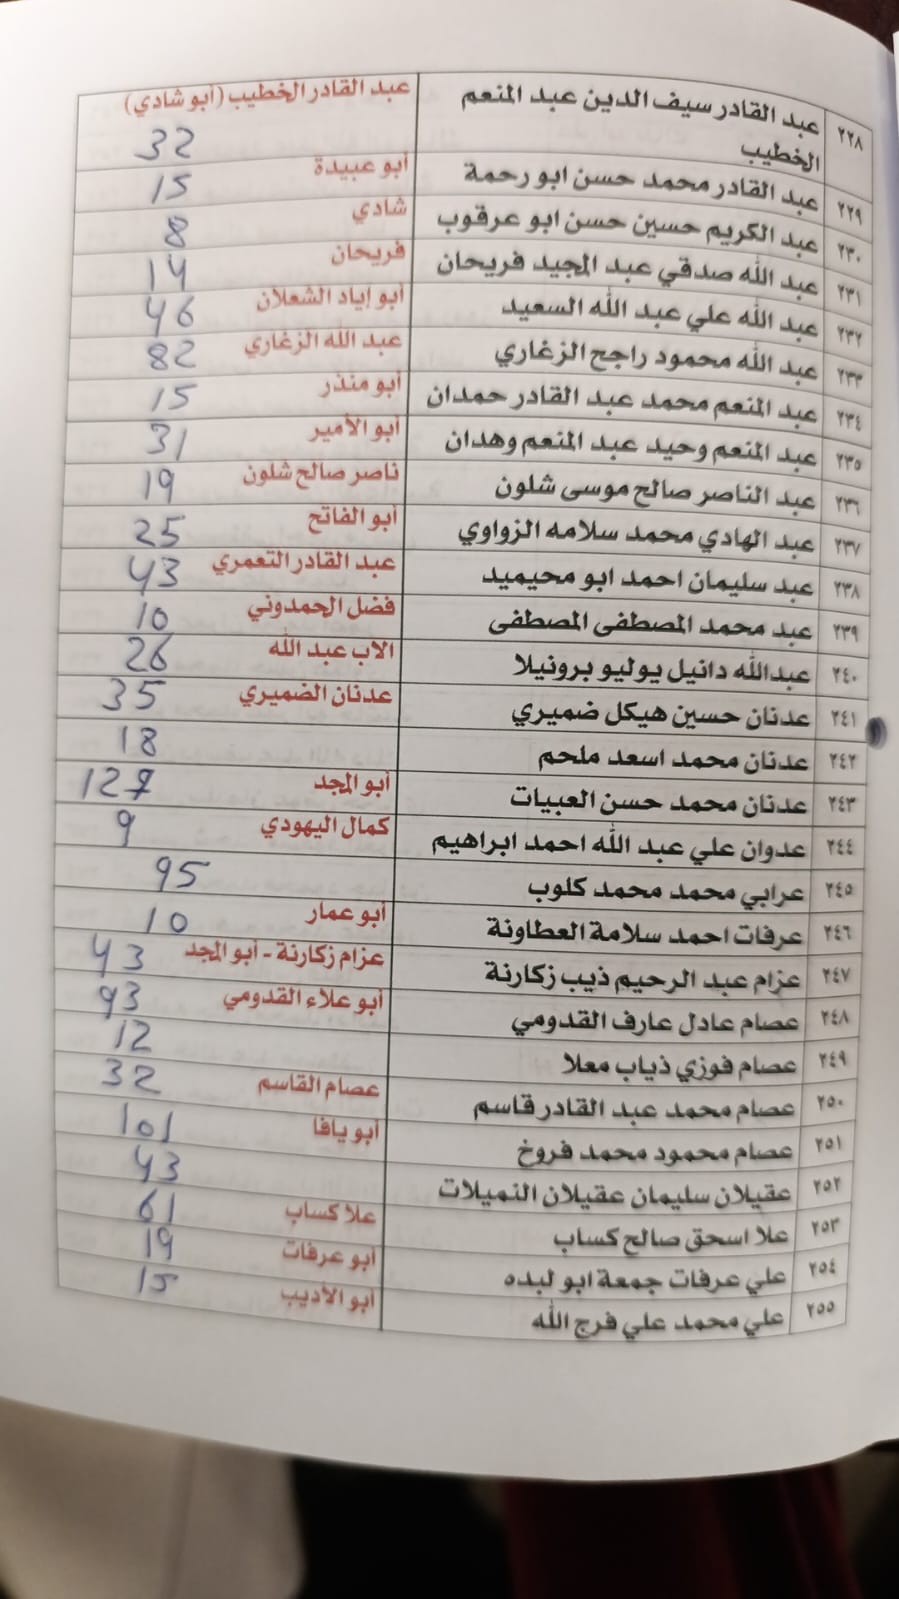 ٢٢٨ عبد القادر سيف الدين عبد المنعم الخطيب عبد القادر الخطيب (أبو شادي) 32
٢٢٩ عبد القادر محمد حسن ابو رحمة أبو عبيدة 15
٢٣٠ عبد الكريم حسين حسن ابو عرقوب شادي 8
٢٣١ عبد الله صدقي عبد المجيد فريحان فريحان 14
٢٣٢ عبد الله علي عبد الله السعيد أبو إياد الشعلان 46
٢٣٣ عبد الله محمود راجح الزغاري عبد الله الزغاري 82
٢٣٤ عبد المنعم محمد عبد القادر حمدان أبو منذر 15
٢٣٥ عبد المنعم وحيد عبد المنعم وهدان أبو الأمير 31
٢٣٦ عبد الناصر صالح موسى شلون ناصر صالح شلون 19
٢٣٧ عبد الهادي محمد سلامه الزواوي أبو الفاتح 25
٢٣٨ عبد سليمان احمد ابو محيميد عبد القادر التعمري 43
٢٣٩ عبد محمد المصطفى المصطفى فضل الحمدوني 10
٢٤٠ عبدالله دانيل يوليو برونيلا الاب عبد الله 26
٢٤١ عدنان حسين هيكل ضميري عدنان الضميري 35
٢٤٢ عدنان محمد اسعد ملحم 18
٢٤٣ عدنان محمد حسن العبيات أبو المجد 127
٢٤٤ عدوان علي عبد الله احمد ابراهيم كمال اليهودي 9
٢٤٥ عرابي محمد محمد كلوب 95
٢٤٦ عرفات احمد سلامة العطاونة أبو عمار 10
٢٤٧ عزام عبد الرحيم ذيب زكارنة عزام زكارنة - أبو المجد 43
٢٤٨ عصام عادل عارف القدومي أبو علاء القدومي 93
٢٤٩ عصام فوزي ذياب معلا 12
٢٥٠ عصام محمد عبد القادر قاسم عصام القاسم 32
٢٥١ عصام محمود محمد فروخ أبو يافا 101
٢٥٢ عقيلان سليمان عقيلان النميلات 43
٢٥٣ علا اسحق صالح كساب علا كساب 61
٢٥٤ علي عرفات جمعة ابو لبده أبو عرفات 19
٢٥٥ علي محمد علي فرج الله أبو الأديب 15